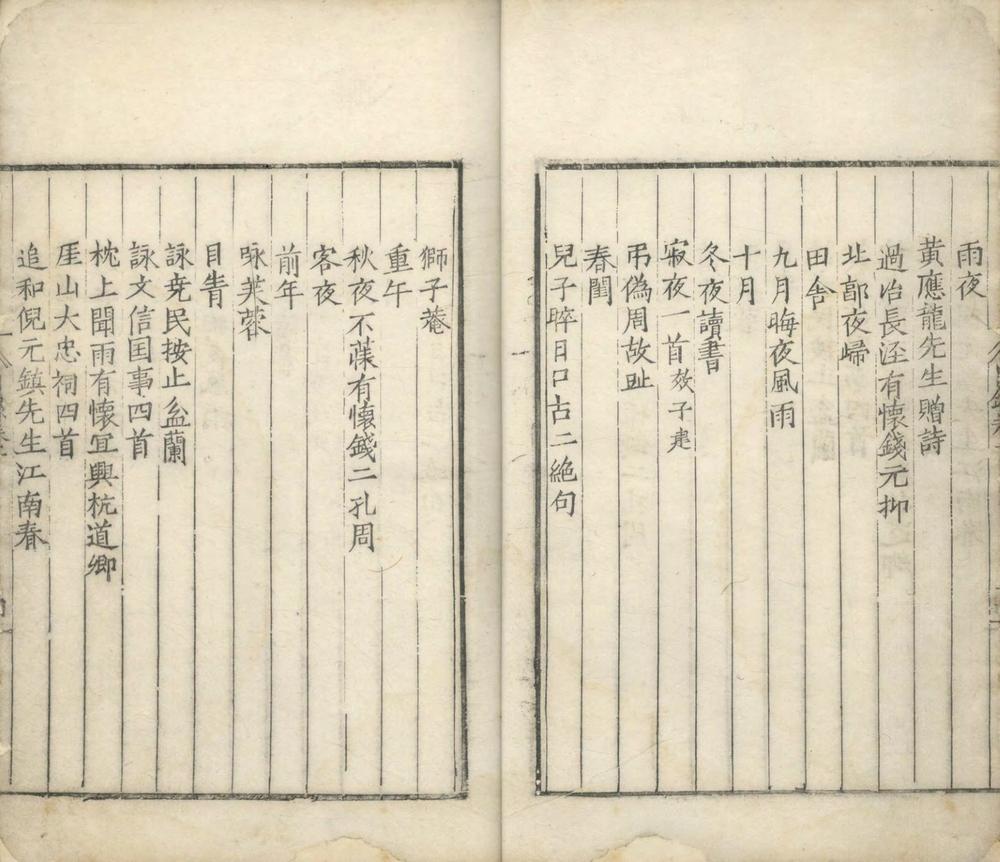 雨夜
黃應龍先生贈詩
過冶長涇有懷錢元抑
北郭夜歸
田舍
九月晦夜風雨
十月
冬夜讀書
寂夜一首效子建
弔偽周故趾
春閨
兒子晬日口占二絕句
獅子菴
重午
秋夜不寐有懷錢二孔周
客夜
前年
咏芙蓉
目眚
詠堯民按止盆蘭
詠文信国事四首
枕上聞雨有懷宜興杭道卿
厓山大忠祠四首
追和倪元鎮先生江南春